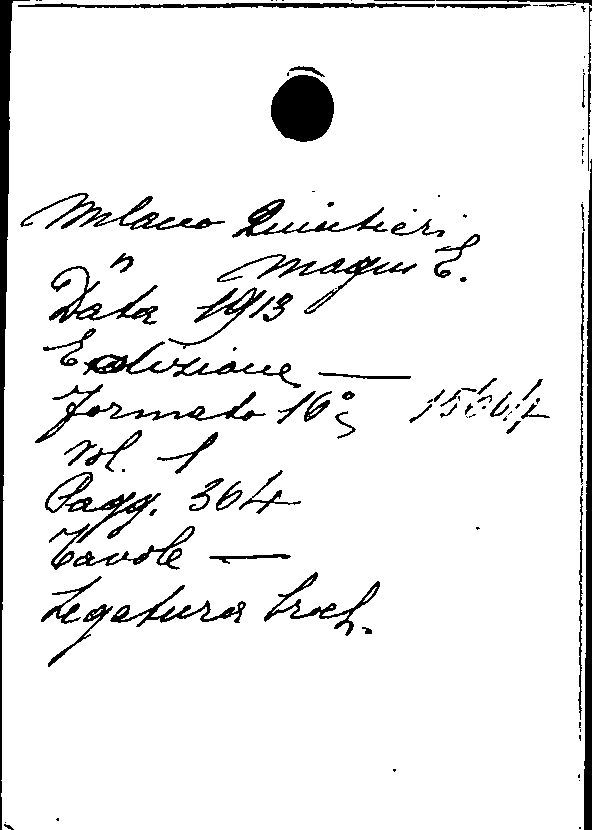 Milano Quintieri
" Magni E.
Data 1913
Edizione —
formato 16° 15604
Vol. 1
Pagg. 364
Tavole —
Legatura broch.